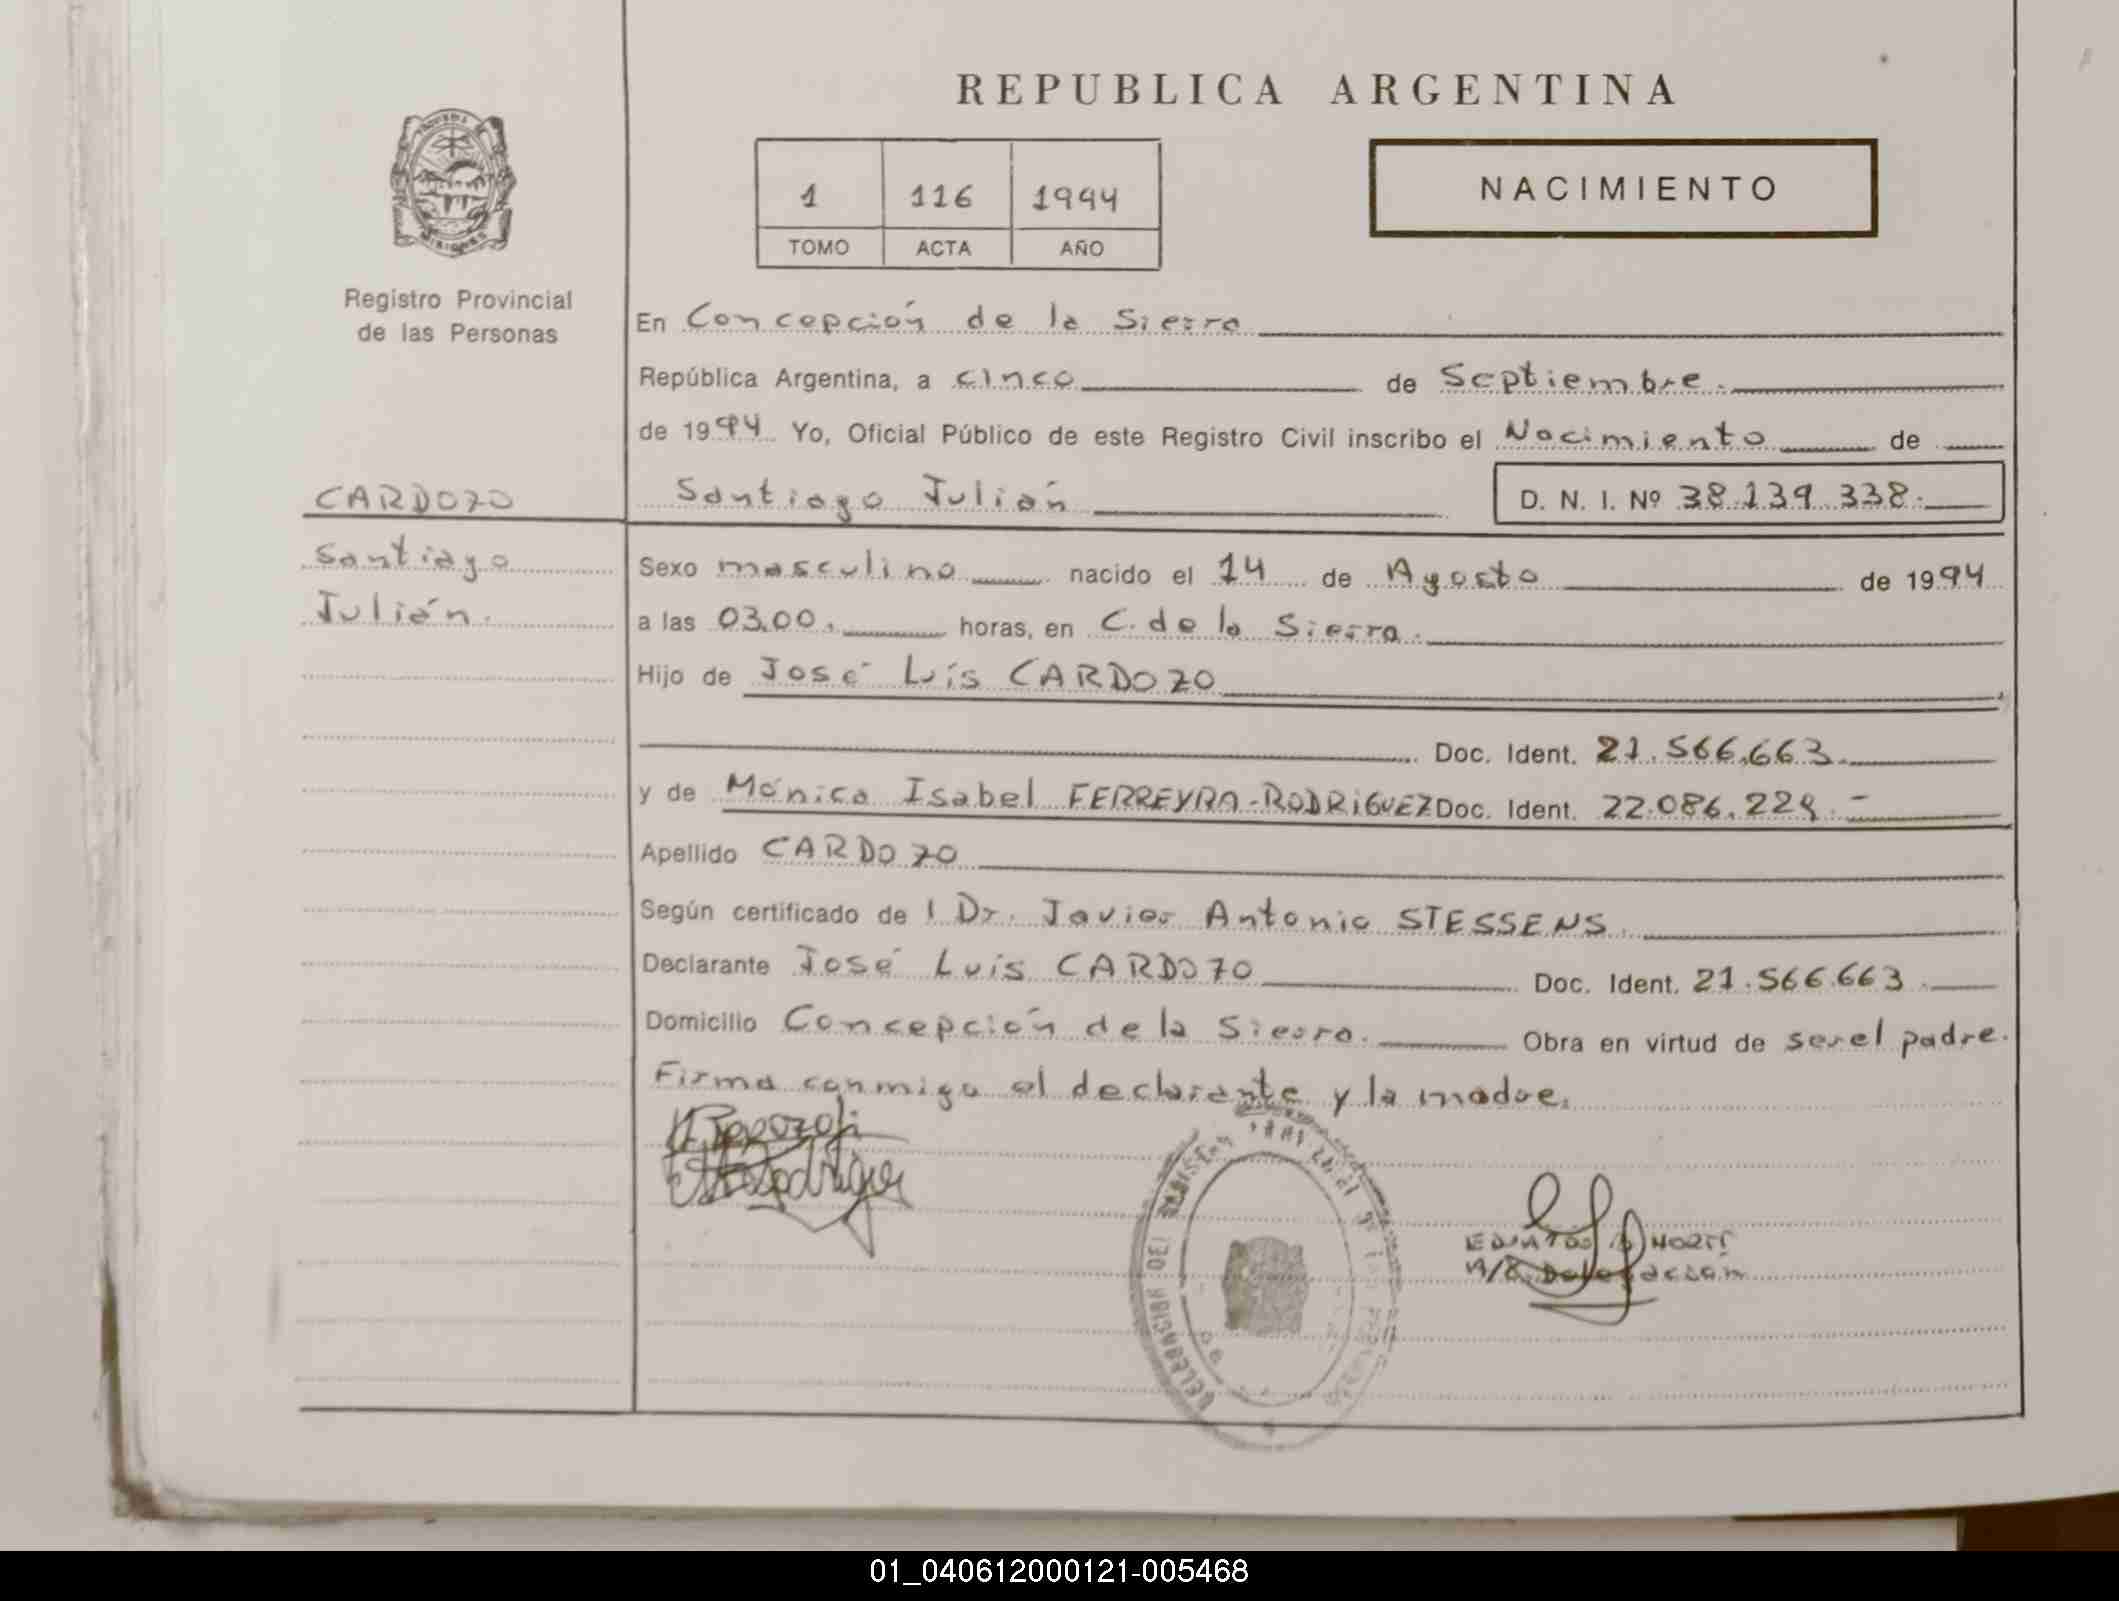 REPUBLICA ARGENTINA
1 116 1994
TOMO ACTA AÑO
NACIMIENTO
MISIONES
Registro Provincial
de las Personas
En Concepción de la Sierra
República Argentina, a cinco de Septiembre.
de 1994 Yo, Oficial Público de este Registro Civil inscribo el Nacimiento de
CARDOZO
Santiago
Julián.
Santiago Julián
D. N. I. Nº 38.139.338.
Sexo masculino nacido el 14 de Agosto de 1994
a las 03.00. horas, en C. de la Sierra.
Hijo de José Luís CARDOZO
Doc. Ident. 21.566.663.
y de Mónica Isabel FERREYRA-RODRIGUEZ Doc. Ident. 22.086.229.-
Apellido CARDOZO
Según certificado de l Dr. Javier Antonio STESSENS.
Declarante José Luis CARDOZO Doc. Ident. 21.566.663.
Domicilio Concepción de la Sierra. Obra en virtud de ser el padre.
Firma conmigo el declarante y la madre.
DELEGACION DEL REGISTRO
A/C. Delegación
01_040612000121-005468